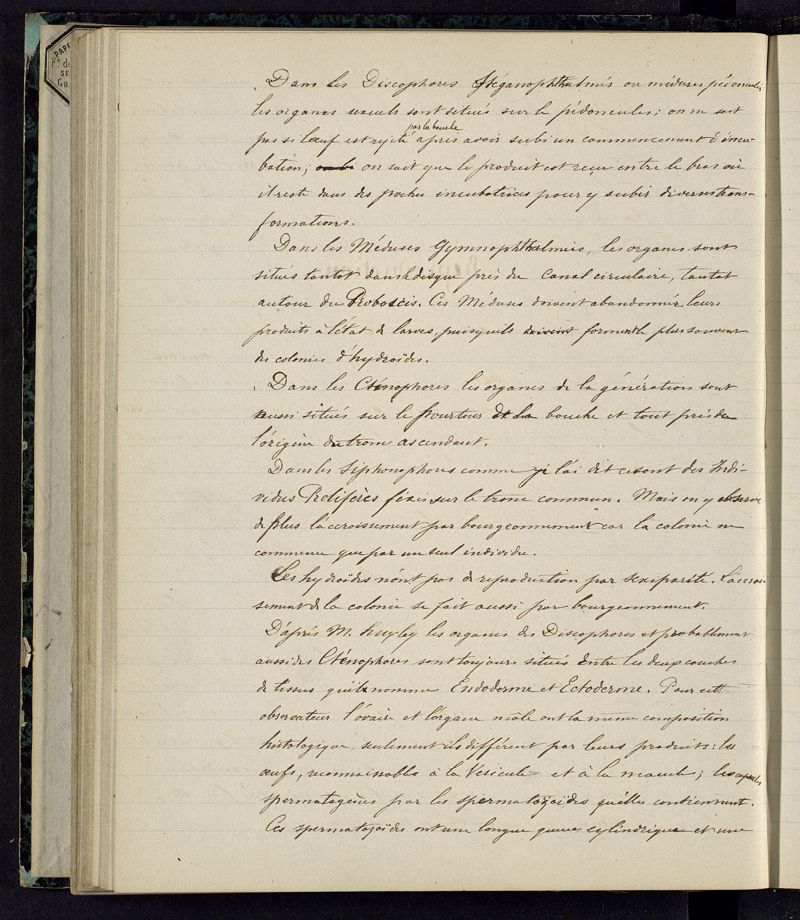 PAPE
Fque de
SE
Ga
. Dans les Discophores Stéganophthalmés ou méduses pédonculés
les organes sexuels sont situés sur le pédoncules; on ne sait
par la bouche
pas si l'œuf est rejeté après avoir subi un commencement d'incu-
bation; on sait que le produit est reçu entre le bras où
il reste dans des poches incubatrices pour y subir diverses trans-
formations.
Dans les Méduses Gymnophthalmes, les organes sont
situés tantot dans le disque près du canal circulaire, tantot
autour du Proboscis. Ces Méduses doivent abandonner leurs
produits à l'état de larves, puisqu'ils forment le plus souvent
des colonies d'hydroïdes.
. Dans les Cténophores les organes de la génération sont
aussi situés sur le pourtour de la bouche et tout près de
l'origine du tronc ascendant.
Dans les Siphonophores comme je l'ai dit ce sont des Indi-
vidus Prolifères fixés sur le tronc commun. Mais on y observe
de plus l'accroissement par bourgeonnement car la colonie ne
commence que par un seul individu.
Les hydroïdes n'ont pas de reproduction par sexiparité. L'accrois-
sement de la colonie se fait aussi par bourgeonnement.
D'après M. Huxley les organes des Discophores et probablement
aussi des Cténophores sont toujours situés entre les deux couches
de tissus qu'il nomme Endoderme et Ectoderme. Pour cet
observateur l'ovaire et l'organe mâle ont la même composition
histologique, seulement ils diffèrent par leurs produits: les
œufs, reconnaissables à la Vésicule et à la macule; les capsules
spermatogènes par les spermatozoïdes qu'elles contiennent.
Ces spermatozoïdes ont une longue queue cylindrique et une